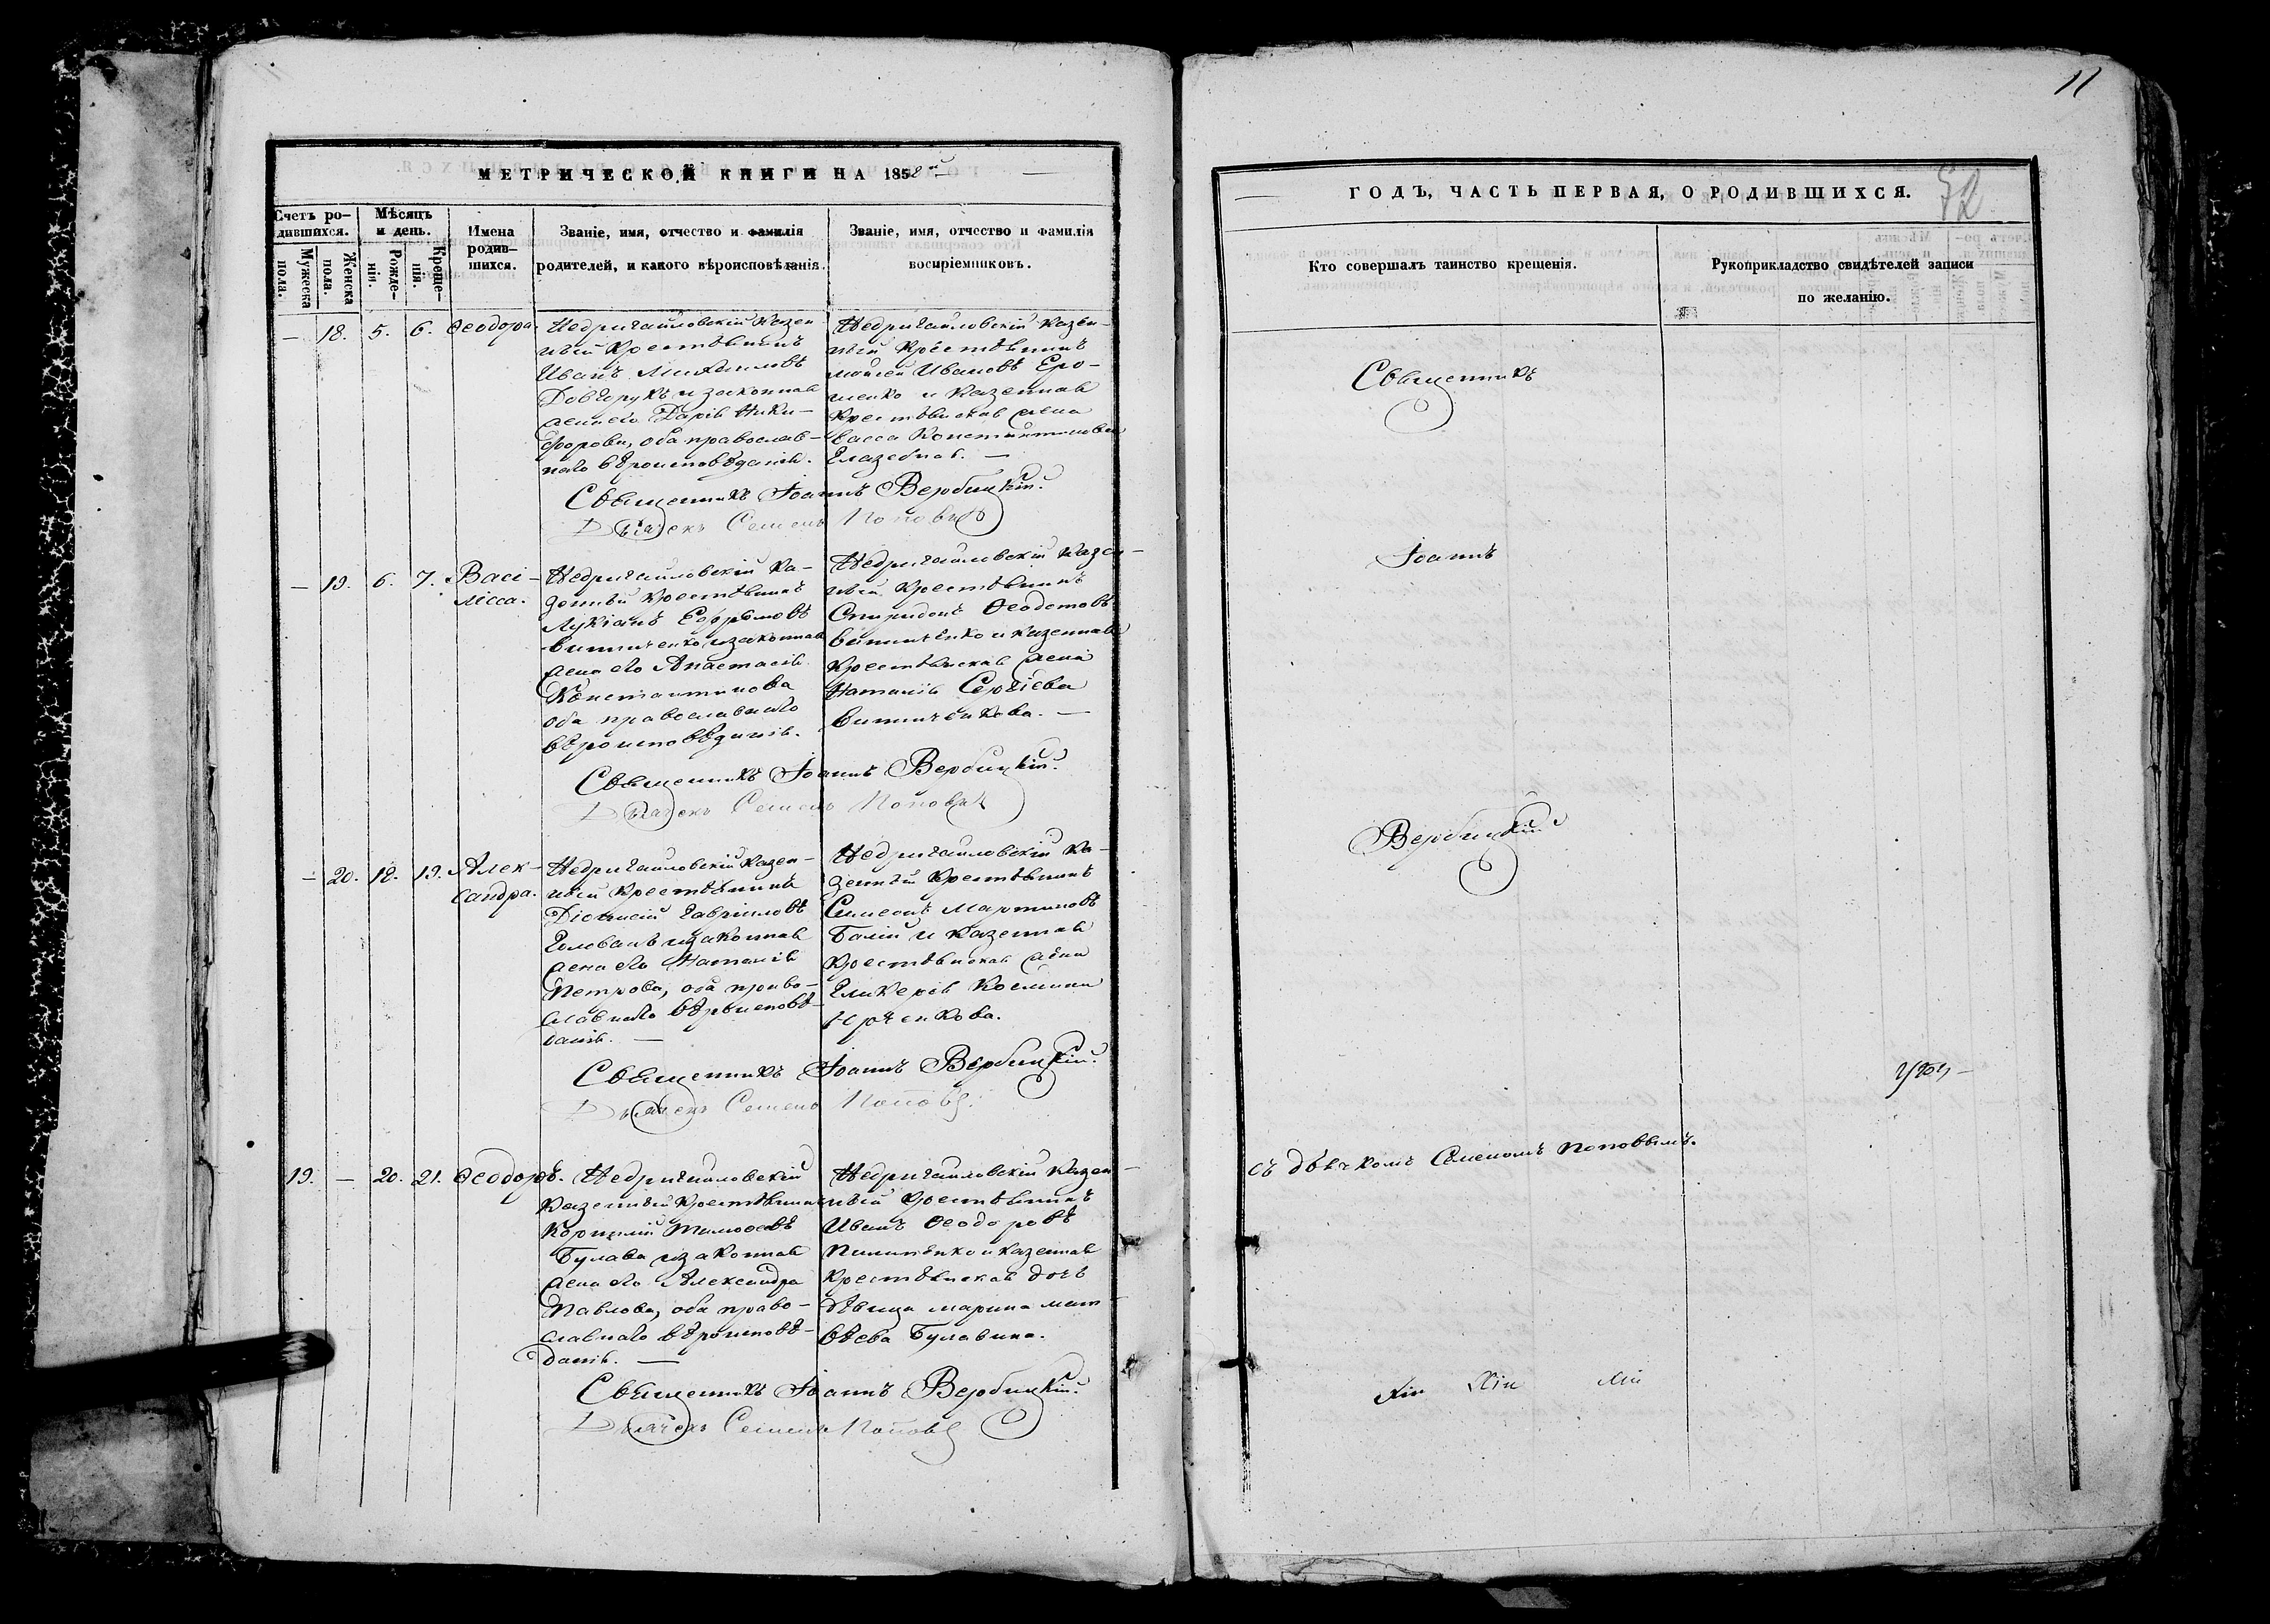 МЕТРИЧЕСКОЙ КНИГИ НА 1858й
Счетъ ро-
дившихся.
Мужеска
пола.
Женска
пола.
Мѣсяцъ
и день.
Рожде-
нія.
Креще-
нія.
Имена
родив-
шихся.
Званіе, имя, отчество и фамилія
родителей, и какого вѣроисповѣданія.
Званіе, имя, отчество и фамилія
воспріемниковъ.
— 18. 5. 6. Ѳеодора.
Недригайловскій Казен-
ный Крестьянинъ
Иванъ Михаиловъ
Довгорукъ и законная
жена его Дарія Ники-
форова, оба православ-
наго вѣроисповѣданія.
Недригайловскій Казен-
ный Крестьянинъ
Мойсей Ивановъ Еро-
шенко и Казенная
Крестьянская жена
Васса Константинова
Глазебная. —
Священникъ Іоаннъ Вербицкій.
Дьячекъ Семенъ Поповъ
— 19. 6. 7. Васи-
лисса.
Недригайловскій Ка-
зенный Крестьянинъ
Лукіанъ Ефремовъ
Витниченко и законная
жена его Анастасія
Константинова
оба православнаго
вѣроисповѣданія.
Недригайловскій Казен-
ный Крестьянинъ
Спиридонъ Ѳеодотовъ
Витниченко и казенная
Крестьянская жена
Наталія Сергіева
Витниченкова. —
Священникъ Іоаннъ Вербицкій.
Дьячекъ Семенъ Поповъ
— 20. 18. 19. Алек-
сандра.
Недригайловскій Казен-
ный Крестьянинъ
Діонисій Гавріиловъ
Голованъ и законная
жена его Наталія
Петрова, оба право-
славнаго вѣроисповѣ-
данія. —
Недригайловскій Ка-
зенный Крестьянинъ
Симеонъ Мартиновъ
Балій и Казенная
Крестьянская жена
Гликерія Космина
Юрченкова.
Священникъ Іоаннъ Вербицкій.
Дьячекъ Семенъ Поповъ.
19. — 20. 21. Ѳеодоръ.
Недригайловскій
Казенный Крестьянинъ
Корнилій Тимоѳеевъ
Булава и законная
жена его Александра
Павлова, оба право-
славнаго вѣроисповѣ-
данія. —
Недригайловскій Казен-
ный Крестьянинъ
Иванъ Ѳеодоровъ
Пилипенко и казенная
Крестьянская дочь
дѣвица Марина Мат-
вѣева Булавина.
Священникъ Іоаннъ Вербицкій.
Дьячекъ Семенъ Поповъ
11
52
ГОДЪ, ЧАСТЬ ПЕРВАЯ, О РОДИВШИХСЯ.
Кто совершалъ таинство крещенія.
Рукоприкладство свидѣтелей записи
по желанію.
Священникъ
Іоаннъ
Вербицкій
съ дьячкомъ Семеномъ Поповымъ.